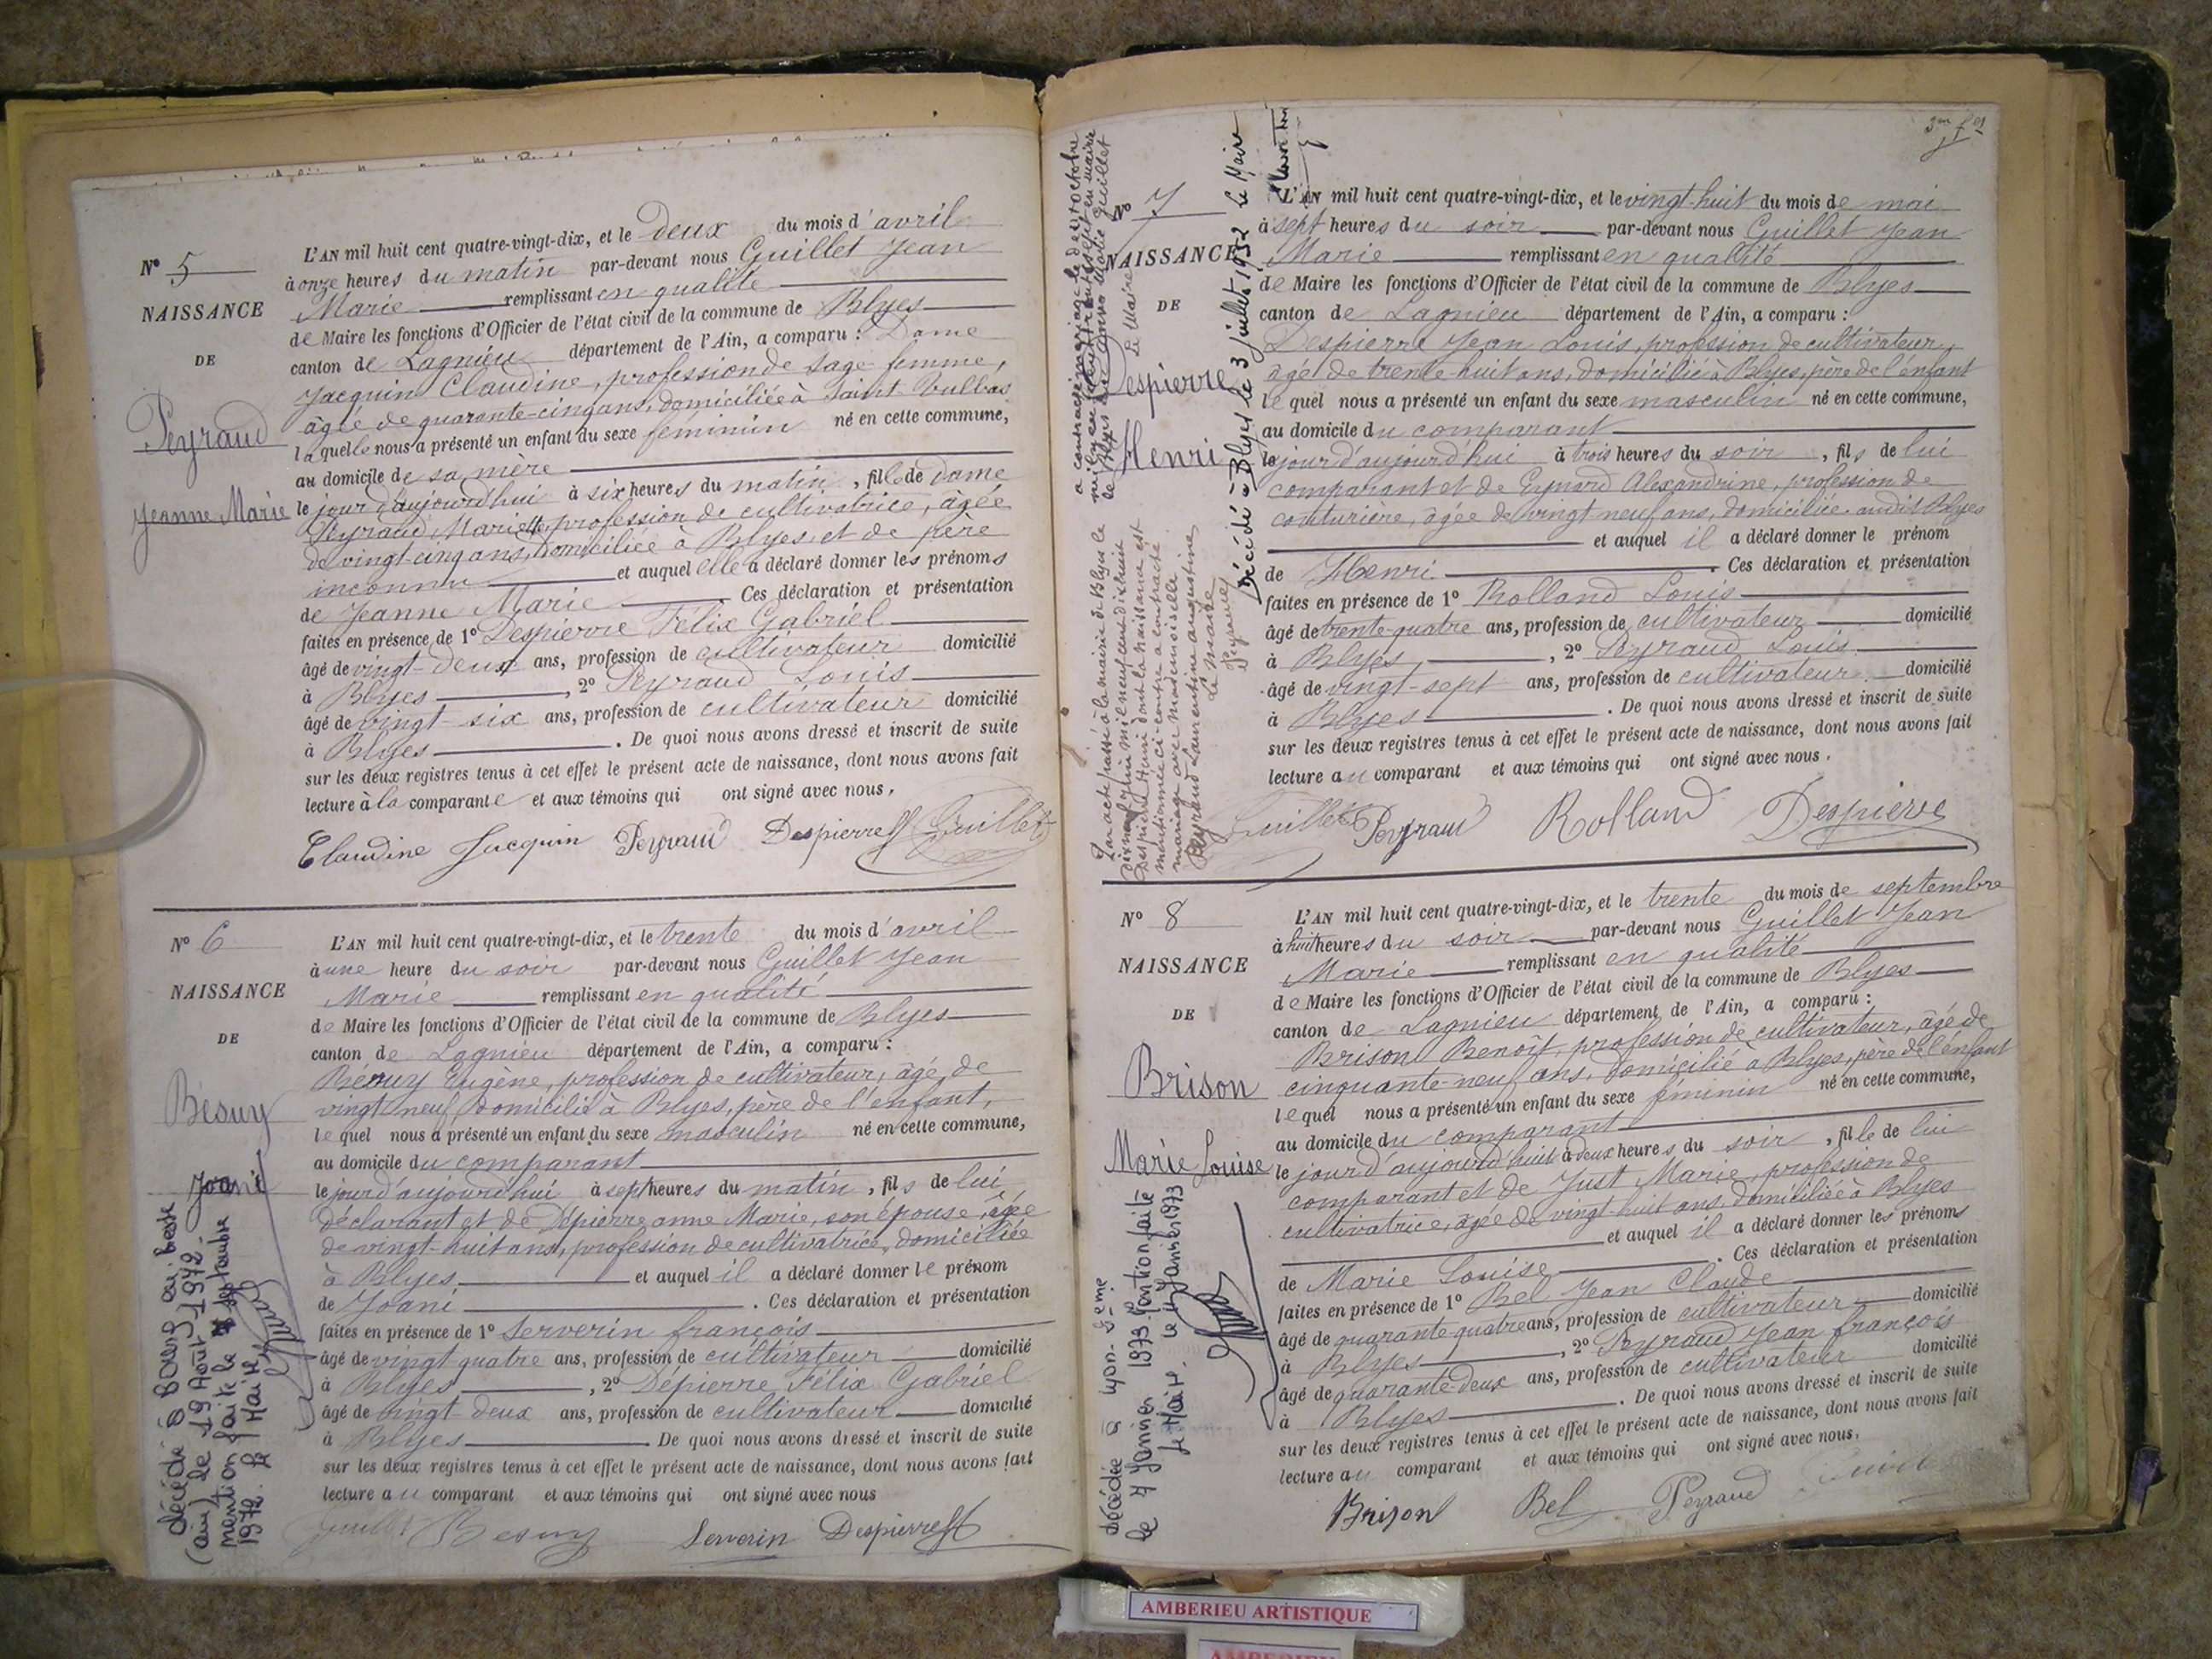 N° 5
NAISSANCE
DE
Peyraud
Jeanne Marie
L'AN mil huit cent quatre-vingt-dix, et le deux du mois d'avril
à onze heures du matin par-devant nous Guillet Jean
Marie remplissant en qualité
de Maire les fonctions d'Officier de l'état civil de la commune de Blyes
canton de Lagnieu département de l'Ain, a comparu : Dame
Jacquin Claudine, profession de sage-femme,
âgée de quarante-cinq ans, domiciliée à Saint-Vulbas
laquelle nous a présenté un enfant du sexe féminin né en cette commune,
au domicile de sa mère
le jour d'aujourd'hui à six heures du matin, fille de dame
Peyraud Mariette, profession de cultivatrice, âgée
de vingt-cinq ans, domiciliée à Blyes, et de père
inconnu et auquel elle a déclaré donner les prénoms
de Jeanne Marie Ces déclaration et présentation
faites en présence de 1° Despierre Félix Gabriel
âgé de vingt-deux ans, profession de cultivateur domicilié
à Blyes, 2° Peyraud Louis
âgé de vingt six ans, profession de cultivateur domicilié
à Blyes. De quoi nous avons dressé et inscrit de suite
sur les deux registres tenus à cet effet le présent acte de naissance, dont nous avons fait
lecture à la comparante et aux témoins qui ont signé avec nous.
Claudine Jacquin Peyraud Despierre Guillet
N° 6
NAISSANCE
DE
Bésuy
Joani
décédé à Bourg en Bresse
(ain) le 19 Août 1972.
mention faite le septembre
1972. Le Maire
L'AN mil huit cent quatre-vingt-dix, et le trente du mois d'avril
à une heure du soir par-devant nous Guillet Jean
Marie remplissant en qualité
de Maire les fonctions d'Officier de l'état civil de la commune de Blyes
canton de Lagnieu département de l'Ain, a comparu :
Bésuy Eugène, profession de cultivateur, âgé de
vingt neuf domicilié à Blyes, père de l'enfant,
lequel nous a présenté un enfant du sexe masculin né en cette commune,
au domicile du comparant
le jour d'aujourd'hui à sept heures du matin, fils de lui
déclarant et de Dépierre anne Marie, son épouse, âgée
de vingt-huit ans, profession de cultivatrice, domiciliée
à Blyes et auquel il a déclaré donner le prénom
de Joani. Ces déclaration et présentation
faites en présence de 1° Serverin françois
âgé de vingt quatre ans, profession de cultivateur domicilié
à Blyes, 2° Dépierre Félix Gabriel
âgé de vingt-deux ans, profession de cultivateur domicilié
à Blyes De quoi nous avons dressé et inscrit de suite
sur les deux registres tenus à cet effet le présent acte de naissance, dont nous avons fait
lecture au comparant et aux témoins qui ont signé avec nous
Guillet Besuy Serverin Despierre
N° 7
NAISSANCE
DE
Despierre
Henri
Décédé à Blyes le 3 juillet 1932 Le Maire
Par acte passé à la mairie de Blyes le
dix neuf juin mil neuf cent dix huit
Despierre Henri dont la naissance est
mentionnée ci-contre a contracté
mariage avec mademoiselle
Peyraud Laurentine augustine
Le maire
L'AN mil huit cent quatre-vingt-dix, et le vingt-huit du mois de mai
à sept heures du soir par-devant nous Guillet Jean
Marie remplissant en qualité
de Maire les fonctions d'Officier de l'état civil de la commune de Blyes
canton de Lagnieu département de l'Ain, a comparu :
Despierre Jean Louis, profession de cultivateur,
âgé de trente-huit ans, domicilié à Blyes, père de l'enfant
lequel nous a présenté un enfant du sexe masculin né en cette commune,
au domicile du comparant
le jour d'aujourd'hui à trois heures du soir, fils de lui
comparant et de Eynard Alexandrine, profession de
couturière, âgée de vingt-neuf ans, domiciliée audit Blyes
et auquel il a déclaré donner le prénom
de Henri. Ces déclaration et présentation
faites en présence de 1° Rolland Louis
âgé de trente-quatre ans, profession de cultivateur domicilié
à Blyes, 2° Peyraud Louis
âgé de vingt-sept ans, profession de cultivateur domicilié
à Blyes. De quoi nous avons dressé et inscrit de suite
sur les deux registres tenus à cet effet le présent acte de naissance, dont nous avons fait
lecture au comparant et aux témoins qui ont signé avec nous.
Guillet Peyraud Rolland Despierre
N° 8
NAISSANCE
DE
Brison
Marie Louise
décédée à Lyon-3ème
le 7 Janvier 1973. Mention faite
le 11 Janvier 1973
Le Maire.
L'AN mil huit cent quatre-vingt-dix, et le trente du mois de septembre
à huit heures du soir par-devant nous Guillet Jean
Marie remplissant en qualité
de Maire les fonctions d'Officier de l'état civil de la commune de Blyes
canton de Lagnieu département de l'Ain, a comparu :
Brison Benoît, profession de cultivateur, âgé de
cinquante-neuf ans, domicilié à Blyes, père de l'enfant
lequel nous a présenté un enfant du sexe féminin né en cette commune,
au domicile du comparant
le jour d'aujourd'hui à deux heures du soir, fille de lui
comparant et de Just Marie, profession de
cultivatrice, âgée de vingt-huit ans, domiciliée à Blyes
et auquel il a déclaré donner les prénoms
de Marie Louise. Ces déclaration et présentation
faites en présence de 1° Bel Jean Claude
âgé de quarante quatre ans, profession de cultivateur domicilié
à Blyes, 2° Peyraud Jean françois
âgé de quarante-deux ans, profession de cultivateur domicilié
à Blyes. De quoi nous avons dressé et inscrit de suite
sur les deux registres tenus à cet effet le présent acte de naissance, dont nous avons fait
lecture au comparant et aux témoins qui ont signé avec nous.
Brison Bel Peyraud
AMBERIEU ARTISTIQUE
AMBERIEU